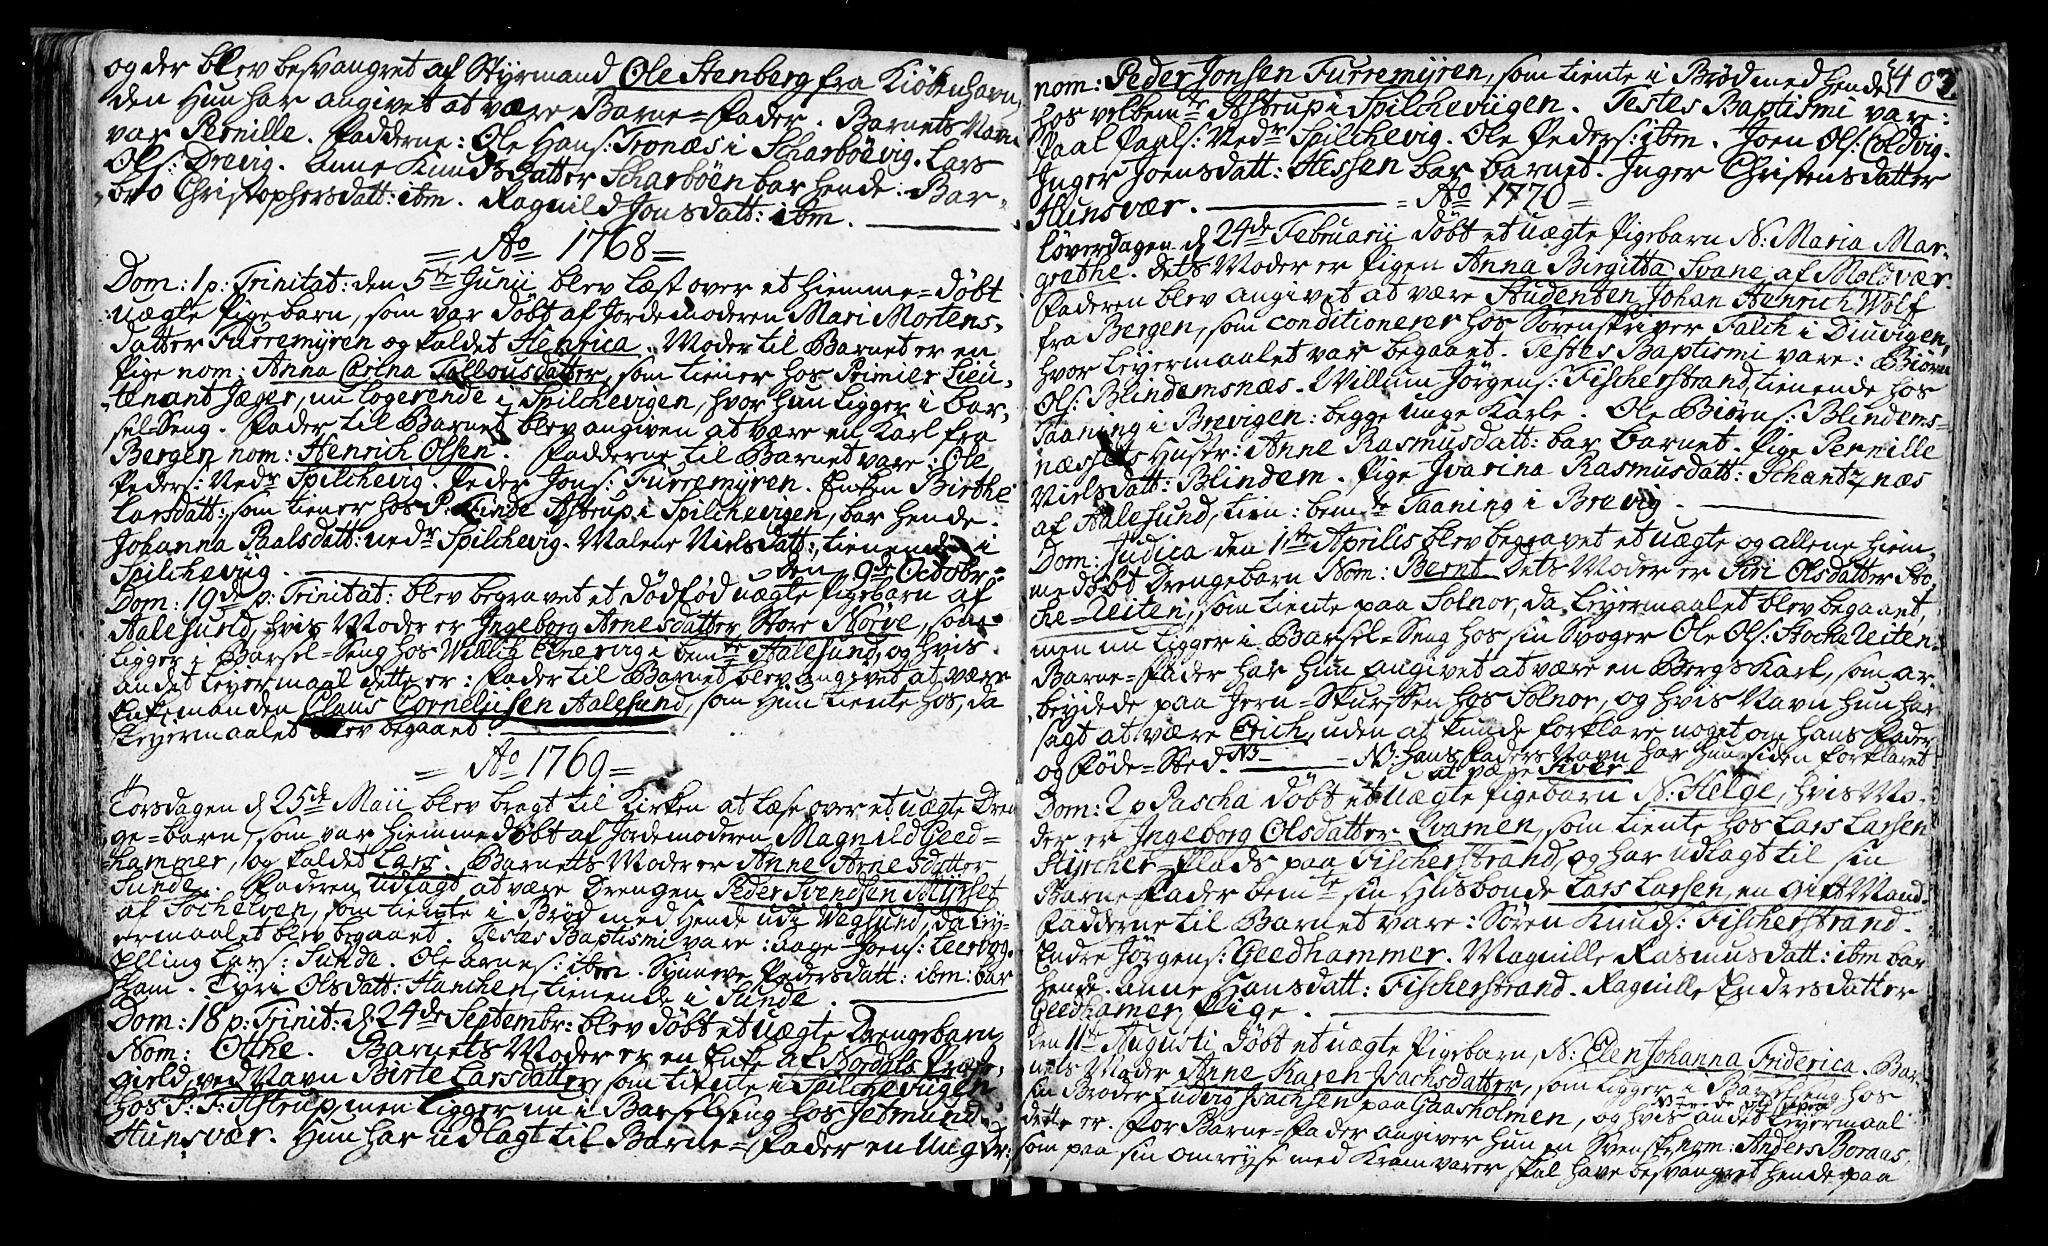 og der blev besvangret af Styrmand Ole Stenberg fra Kiöbenhavn,
den Hun har angivet at være Barne-Fader. Barnets Navn
var Pernille. Fadderne: Ole Hans: Tronæs i Scharböevig. Lars
Ols: Drevig. Anne Knuds Datter Scharböen bar hende. Bar-
bro Christophersdatt: ibm. Ragnild Jonsdatt: ibm.
= Ao 1768 =
Dom: 1 p: Trinitat: den 5te Junii blev læst over et hiemme-döbt
uægte Pigebarn, som var döbt af Jordemoderen Mari Mortens-
datter Furremyren og kaldet Henrica. Moder til Barnet er en
Pige nom: Anna Carina Tollousdatter, som tiener hos Primier Lieu-
tenant Jæger, nu logerende i Spilchevigen, hvor hun ligger i Bar-
sel-Seng. Fader til Barnet blev angiven at være en Karl fra
Bergen nom: Henrich Olsen. Fadderne til Barnet vare: Ole
Peders: Nedr Spilchevig. Peder Jons: Furremyren. Enken Birthe
Larsdatt: som tiener hos P: Finde Astrup i Spilchevigen, bar hende.
Johanna Paalsdatt: nedr Spilchevig. Malene Nielsdatt: tienende i
Spilchevig.
den 9de Octobr:
Dom: 19de p: Trinitat: blev begravet et dödföd uægte Pigebarn af
Aalesund, hvis Moder er Ingeborg Arnesdatter Store Nörve, som
ligger i Barsel-Seng hos Willitz Einevig i bemte Aalesund, og hvis
andet Leyermaal dette er: Fader til Barnet blev angivet at være
Enkemanden Claus Corneliusen Aalesund, som Hun tiente hos, da
Leyermaalet blev begaaet.
= Ao 1769 =
Torsdagen d 25de Maii blev bragt til Kirken at læse over et uægte Dren-
ge-barn, som var hiemmedöbt af Jordemoderen Magnild Geed-
hammer, og kaldet Lars. Barnets Moder er Anne Arnesdatter
Sunde. Faderen udlagt at være Drengen Peder Svendsen Myrset
af Sochelven, som tiente i Bröd med hende udi Wegsund, da Ley-
ermaalet blev begaaet. Testes Baptismi vare: Aage Joens: Leervog.
Elling Lars: Sunde. Ole Arnes: ibm. Synneve Pedersdatt: ibm: bar
ham. Tyri Olsdatt: Hanchen, tienende i Sunde.
Dom: 18 p: Trinit: d 24de Septembr: blev döbt et uægte Drengebarn
Nom: Otthe. Barnets Moder er en Enke af Nordals Præste-
gield, ved Navn Birte Larsdatter, som tiente i Spilchevigen
hos P: F: Astrup, men ligger nu i Barselseng hos Jetmund
Hunsvær. Hun har udlagt til Barne-Fader en Ung Dr:
403
nom: Peder Jonsen Furremyren, som tiente i Bröd med hende
hos velbemte Astrup i Spilchevigen. Testes Baptismi vare:
Paal Paals: Nedr Spilchevig. Ole Peders: ibm. Joen Ols: Coldvig.
Inger Joensdatt: Hessen bar barnet. Inger Christensdatter
Hunsvær.
= Ao 1770 =
Löverdagen d 24de Februarii döbt et uægte Pigebarn N: Maria Mar-
grethe. Dets Moder er Pigen Anna Birgitta Svane af Moldvær.
Faderen blev angivet at være Studenten Johan Henrich Wolf
fra Bergen, som conditionerer hos Sorenskriver Falch i Duvigen,
hvor Leyermaalet var begaaet. Testes Baptismi vare: Biörn
Ols: Blindemsnæs. Willum Jörgens: Fischerstrand, tienende hos
Taaning i Brevigen: begge unge Karle. Ole Biörns: Blindems-
næssets Hustr: Anne Rasmusdatt: bar Barnet. Pige Pernille
Nielsdatt: Blindem. Pige Ivarina Rasmusdatt: Schantznæs
af Aalesund, tien: bemte Taaning i Brevig.
Dom: Judica den 1ste Aprilis blev begravet et uægte og allene hiem-
medöbt Drengebarn Nom: Bernt. Dets Moder er Siri Olsdatter Sto-
che-Reiten, som tiente paa Solnor, da Leyermaalet blev begaaet,
men nu ligger i Barsel-Seng hos sin Svoger Ole Ols: Stocha Reiten.
Barne-Fader har Hun angivet at være en Bergs Karl, som ar-
beydede paa Jern-Skurffen hos Solnor, og hvis Navn hun har
sagt at være Erich, uden at kunde forklare noget om hans Fader
og Föde-Sted. NB. NB. hans Faders Navn har hun siden forklaret
at være Siver.
Dom: 2 p Pascha döbt et uægte Pigebarn N: Helge, hvis Mo-
der er Ingeborg Olsdatter Qvamen, som tiente hos Lars Larsen
Styrcher-Plads paa Fischerstrand, og har udlagt til sin
Barne-Fader bemte sin Husbonde Lars Larsen, en gift Mand.
Fadderne til Barnet vare: Sören Knuds: Fischerstrand.
Endre Jörgens: Geedhammer. Magnille Rasmusdatt: ibm bar
hende. Anne Hansdatt: Fischerstrand. Ragnille Endresdatter
Geedhamer, Pige.
Den 11te Augusti döbt et uægte Pigebarn, N: Elen Johanna Friderica. Bar-
nets Moder Anne Karen Isachsdatter, som ligger i Barselseng hos
sin Broder Ludvig Isachsen paa Gaasholmen, og hvis andet Leyermaal
dette er. For Barne-Fader angiver hun en Svensk nom: Anders Boraas,
som paa sin omreyse med Kramvarer skal have besvangret hende paa